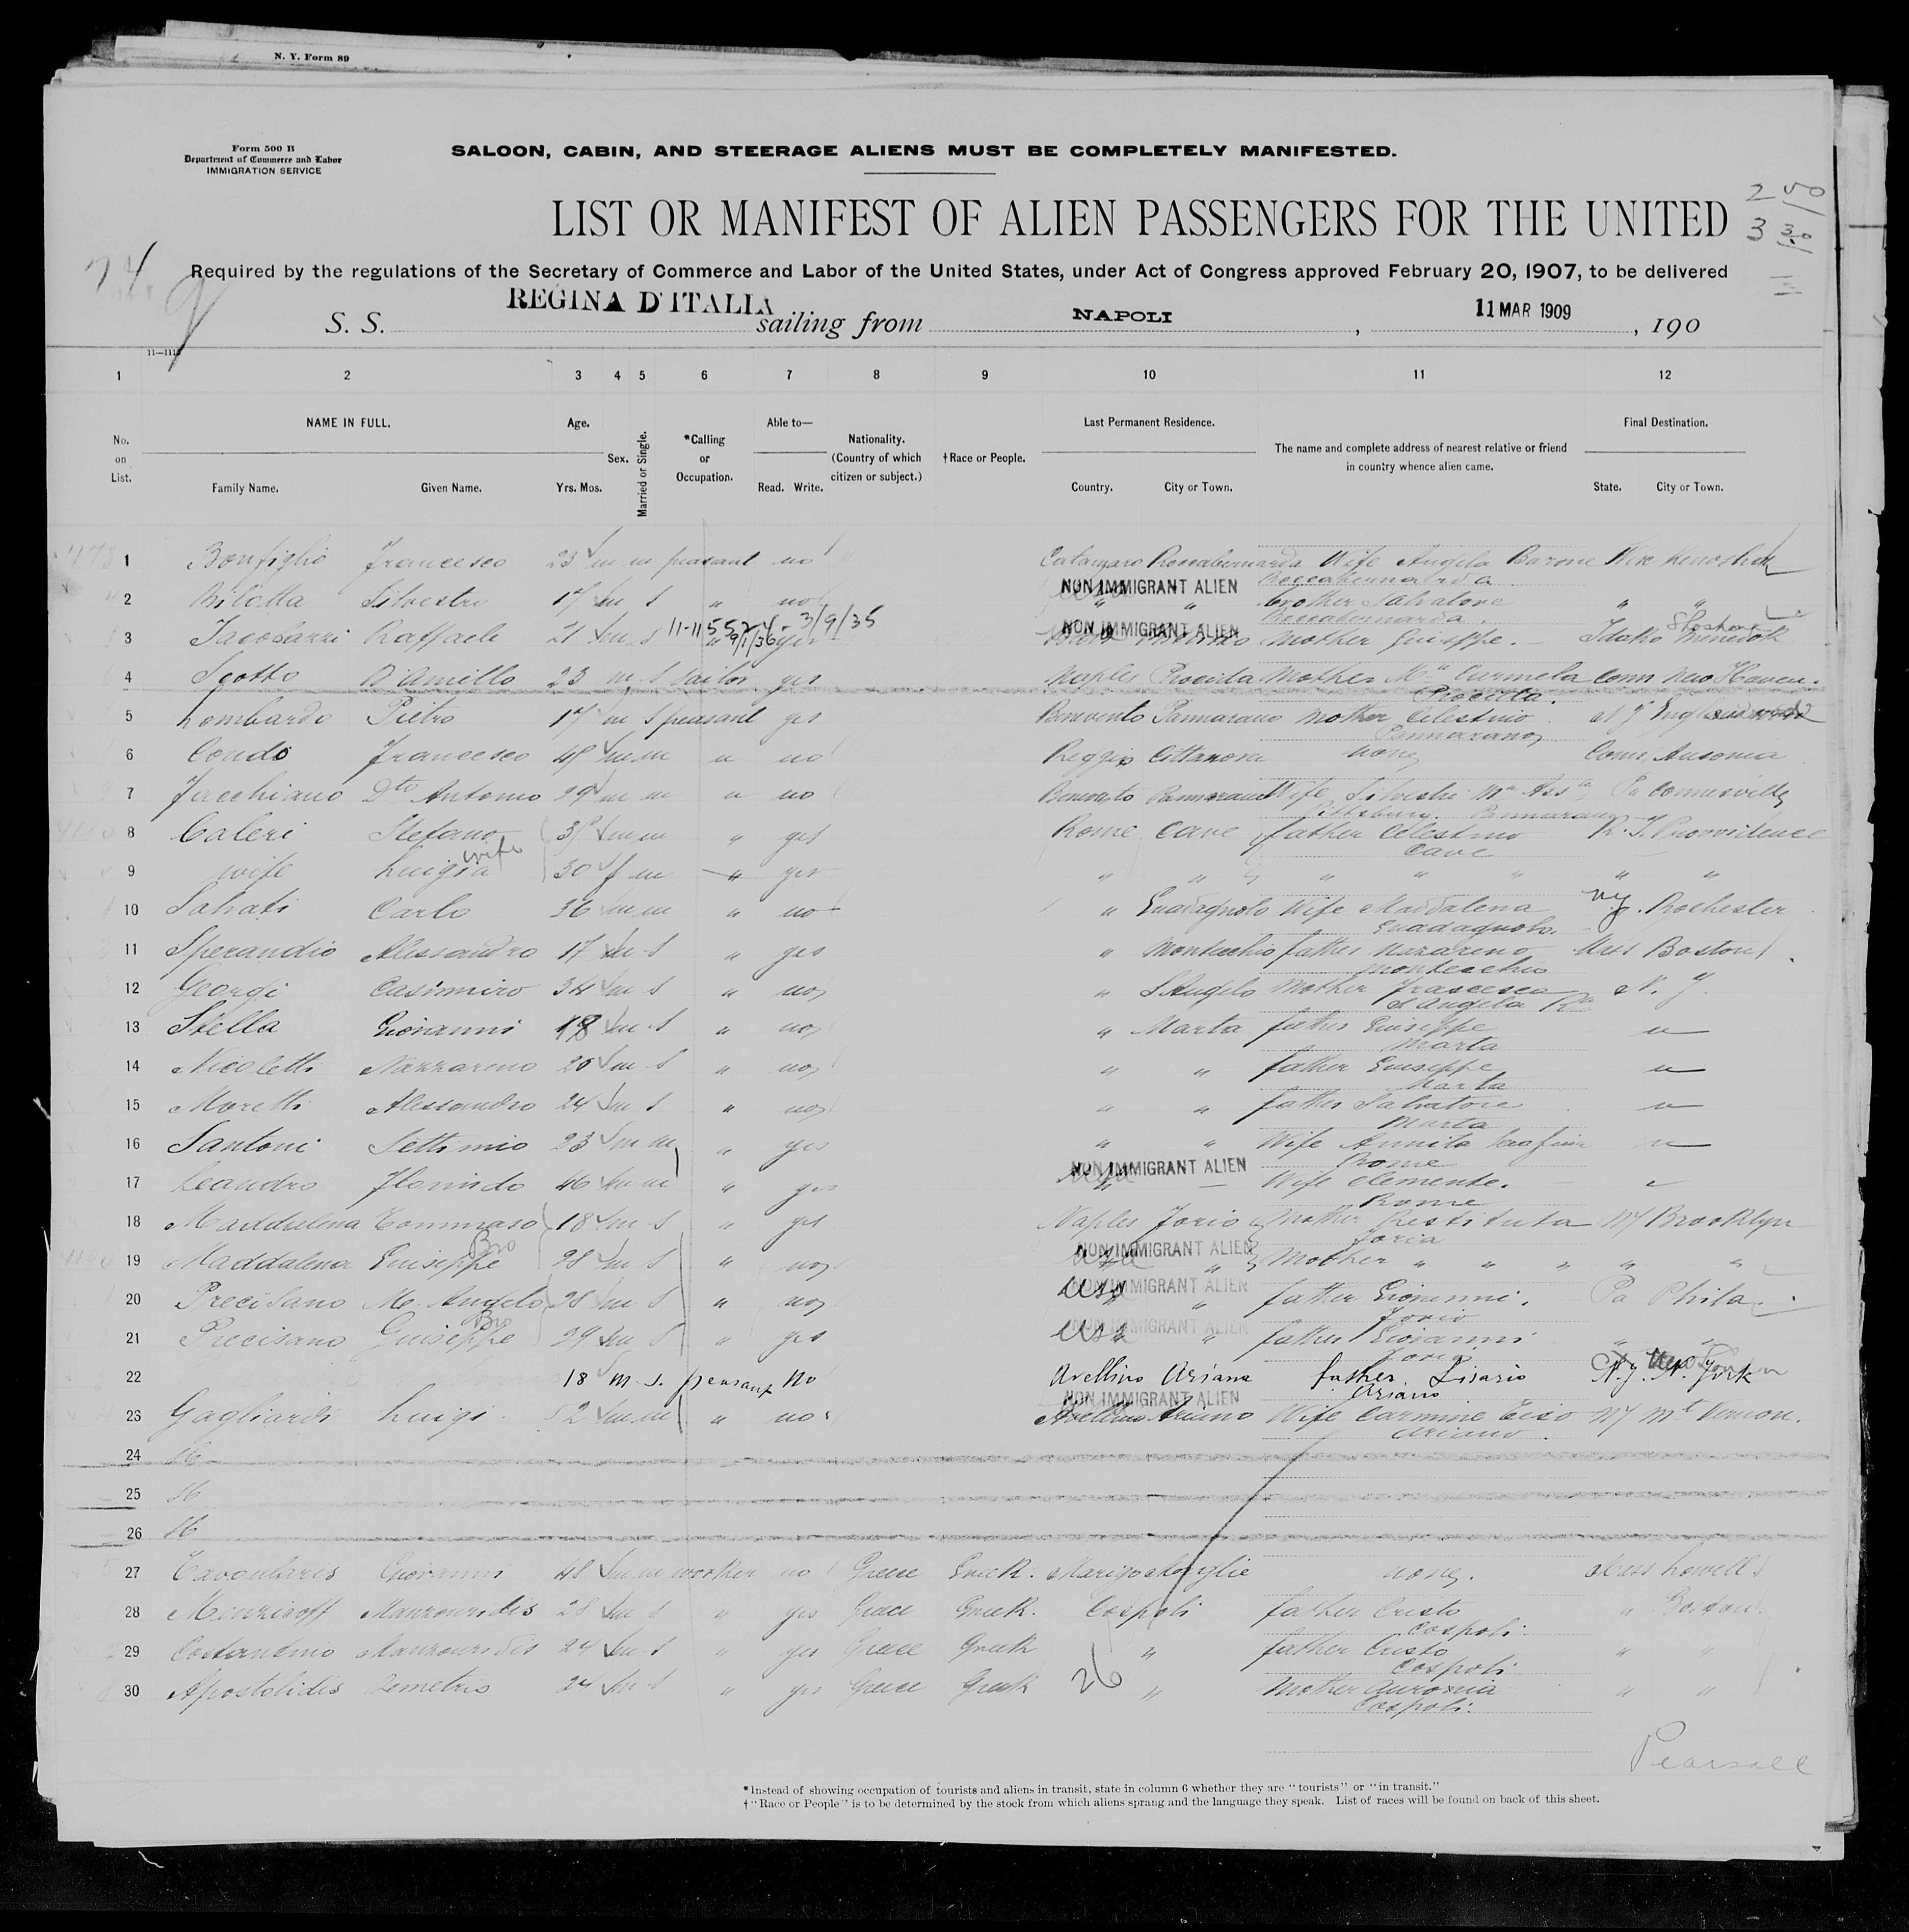 N. Y. Form 89
Form 500 B
Department of Commerce and Labor
IMMIGRATION SERVICE
SALOON, CABIN, AND STEERAGE ALIENS MUST BE COMPLETELY MANIFESTED.
LIST OR MANIFEST OF ALIEN PASSENGERS FOR THE UNITED
Required by the regulations of the Secretary of Commerce and Labor of the United States, under Act of Congress approved February 20, 1907, to be delivered
S. S. REGINA D'ITALIA sailing from NAPOLI, 11 MAR 1909, 190
1 2 3 4 5 6 7 8 9 10 11 12
No. on List.
NAME IN FULL.
Family Name. Given Name.
Age.
Yrs. Mos.
Sex.
Married or Single.
*Calling or Occupation.
Able to—
Read. Write.
Nationality. (Country of which citizen or subject.)
†Race or People.
Last Permanent Residence.
Country. City or Town.
The name and complete address of nearest relative or friend in country whence alien came.
Final Destination.
State. City or Town.
1 Bonfiglio Francesco 23 m m peasant no Catanzaro Roccabernarda Wife Angela Barone
Roccabernarda
2 Bilotta Silvestro 17 m s " no NON IMMIGRANT ALIEN " brother Salvatore " "
Roccabernarda
11-11552 4 - 3/9/36
3 Raffaele 21 m s " yes NON IMMIGRANT ALIEN Mother Giuseppe. Idaho
4 Scotto D'Aniello 23 m s sailor yes Naples Procida Mother Ma Carmela Conn New Haven.
Procida.
5 Lombardo Pietro 17 m s peasant yes Benevento Pannarano Mother Celestino
Pannarano
6 Condo Francesco 48 m m " no Reggio Cittanova none Conn, Ansonia
7 Antonio 29 m m " no Benevento Pannarano Wife Silvestri Ma
Pittsburg. Pannarano
8 Caleri Stefano m m " yes Rome Cave father Celestino R. I. Providence
Cave
9 wife Luigia wife 30 f m " yes " " " " " " "
10 Salvati Carlo 36 m m " no " Guadagnolo Wife Maddalena NY. Rochester
Guadagnolo.
11 Sperandio Alessandro 17 m s " yes " Montecchio father Nazareno Mass Boston
Montecchio
12 Georgi Casimiro 34 m s " no " S. Angelo Mother Francesca N. Y.
S Angelo
13 Stella Giovanni 18 m s " no " Marta father Giuseppe "
Marta
14 Nicoletti Nazzareno 20 m s " no " " father Giuseppe "
Marta
15 Moretti Alessandro 24 m s " no " " father Salvatore "
Marta
16 Santoni Settimio 23 m m " yes " " Wife Annita "
Rome
17 Leandro Florindo 46 m m " yes NON IMMIGRANT ALIEN Wife Clemente. "
Rome
18 Maddalena Tommaso 18 m s " yes Naples Forio Mother Restituta NY Brooklyn
Foria
19 Maddalena Giuseppe Bro 28 m s " no NON IMMIGRANT ALIEN USA " Mother " " " " "
20 Precisano M. Angelo 28 m s " no NON IMMIGRANT ALIEN USA " father Giovanni. Pa Phila.
Forio
21 Precisano Giuseppe Bro 29 m s " yes NON IMMIGRANT ALIEN USA " father Giovanni " "
Forio
22 18 m s. peasant No Avellino Ariana father. Lisario N.Y. N. York
Ariano
23 Gagliardi Luigi 52 m m " no NON IMMIGRANT ALIEN Avellino Ariano Wife Carmine NY Mt Vernon.
Ariano.
24
25
26
27 Giovanni 48 m m worker no Greece Greek. none. Mass Lowell
28 Manzouridis 28 m s " yes Greece Greek. Cospoli father Cristo " Boston.
Cospoli.
29 Costantino Manzouridis 24 m s " yes Greece Greek " father Cristo " "
Cospoli
30 Apostolidis Demetrio 24 m s " yes Greece Greek " Mother " "
Cospoli.
26
Pearsall
*Instead of showing occupation of tourists and aliens in transit, state in column 6 whether they are "tourists" or "in transit."
†"Race or People" is to be determined by the stock from which aliens sprang and the language they speak. List of races will be found on back of this sheet.